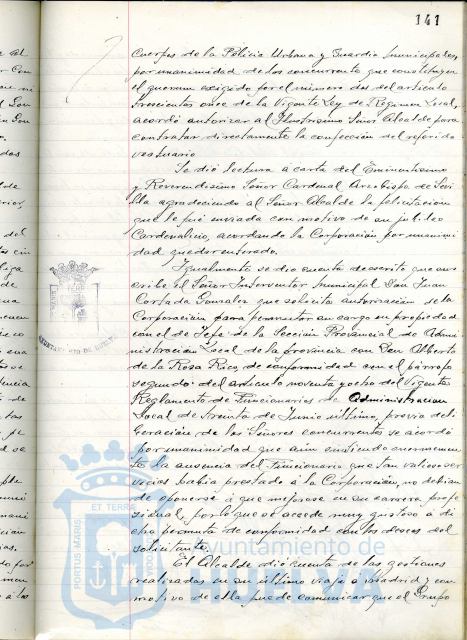 141
Cuerpos de la Policia Urbana y Guardia Municipales,
por unanimidad de los concurrentes que constituyen
el quorum exigido por el número dos del artículo
trescientos once de la Vigente Ley de Régimen Local,
acordó autorizar al Ilustrisimo Señor Alcalde para
contratar directamente la confección del referido
vestuario.
Se dió lectura á carta del Eminentisimo
y Reverendisimo Señor Cardenal Arzobispo de Sevi
lla agradeciendo al Señor Alcalde la felicitación
que le fué enviada con motivo de su jubileo
Cardenalicio, acordando la Corporación por unanimi
dad quedar enterada.
Igualmente se dió cuenta de escrito que sus
cribe el Señor Interventor Municipal Don Juan
Cortada Gonzalez que solicita autorización de la
Corporación para permutar su cargo en propiedad
con el de Jefe de la Sección Provincial de Admi
nistración Local de la provincia con Don Alberto
de la Rosa Rico, de conformidad con el párrafo
segundo del artículo noventa y ocho del Vigente
Reglamento de Funcionarios de Administracion
Local de treinta de Junio último, previa deli
beración de los Señores concurrentes se acordó
por unanimidad que aún sintiendo enormemen
te la ausencia del Funcionario que tan valiosos ser
vicios habia prestado á la Corporación, no debian
de oponerse á que mejorase en su carrera profe
sional, por lo que se accede muy gustoso á di
cha permuta de conformidad con los deseos del
solicitante.
El Alcalde dió cuenta de las gestiones
realizadas en su último viaje á Madrid y con
motivo de ella puede comunicar que el Grupo
AYUNTAMIENTO DE HUELVA
PORTUS MARIS
ET TERRAE
Ayuntamiento de
HUELVA